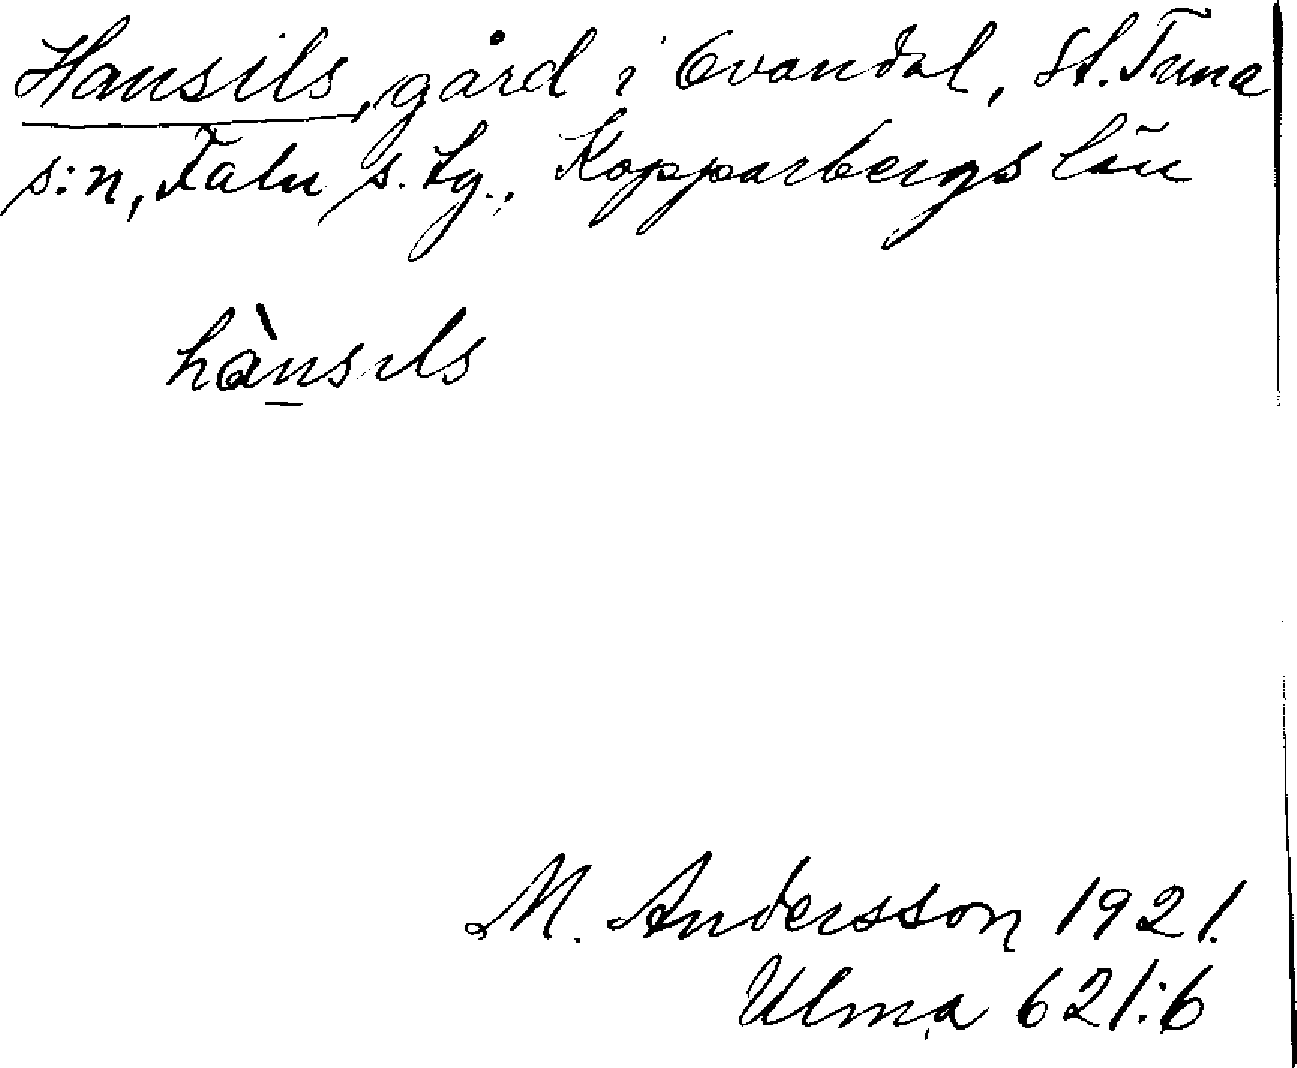 Hansils, gård i Ovandal, St. Tuna
s:n, Falu s. lg., Kopparbergs län
hànsils
M. Andersson 1921.
Ulma 621:6